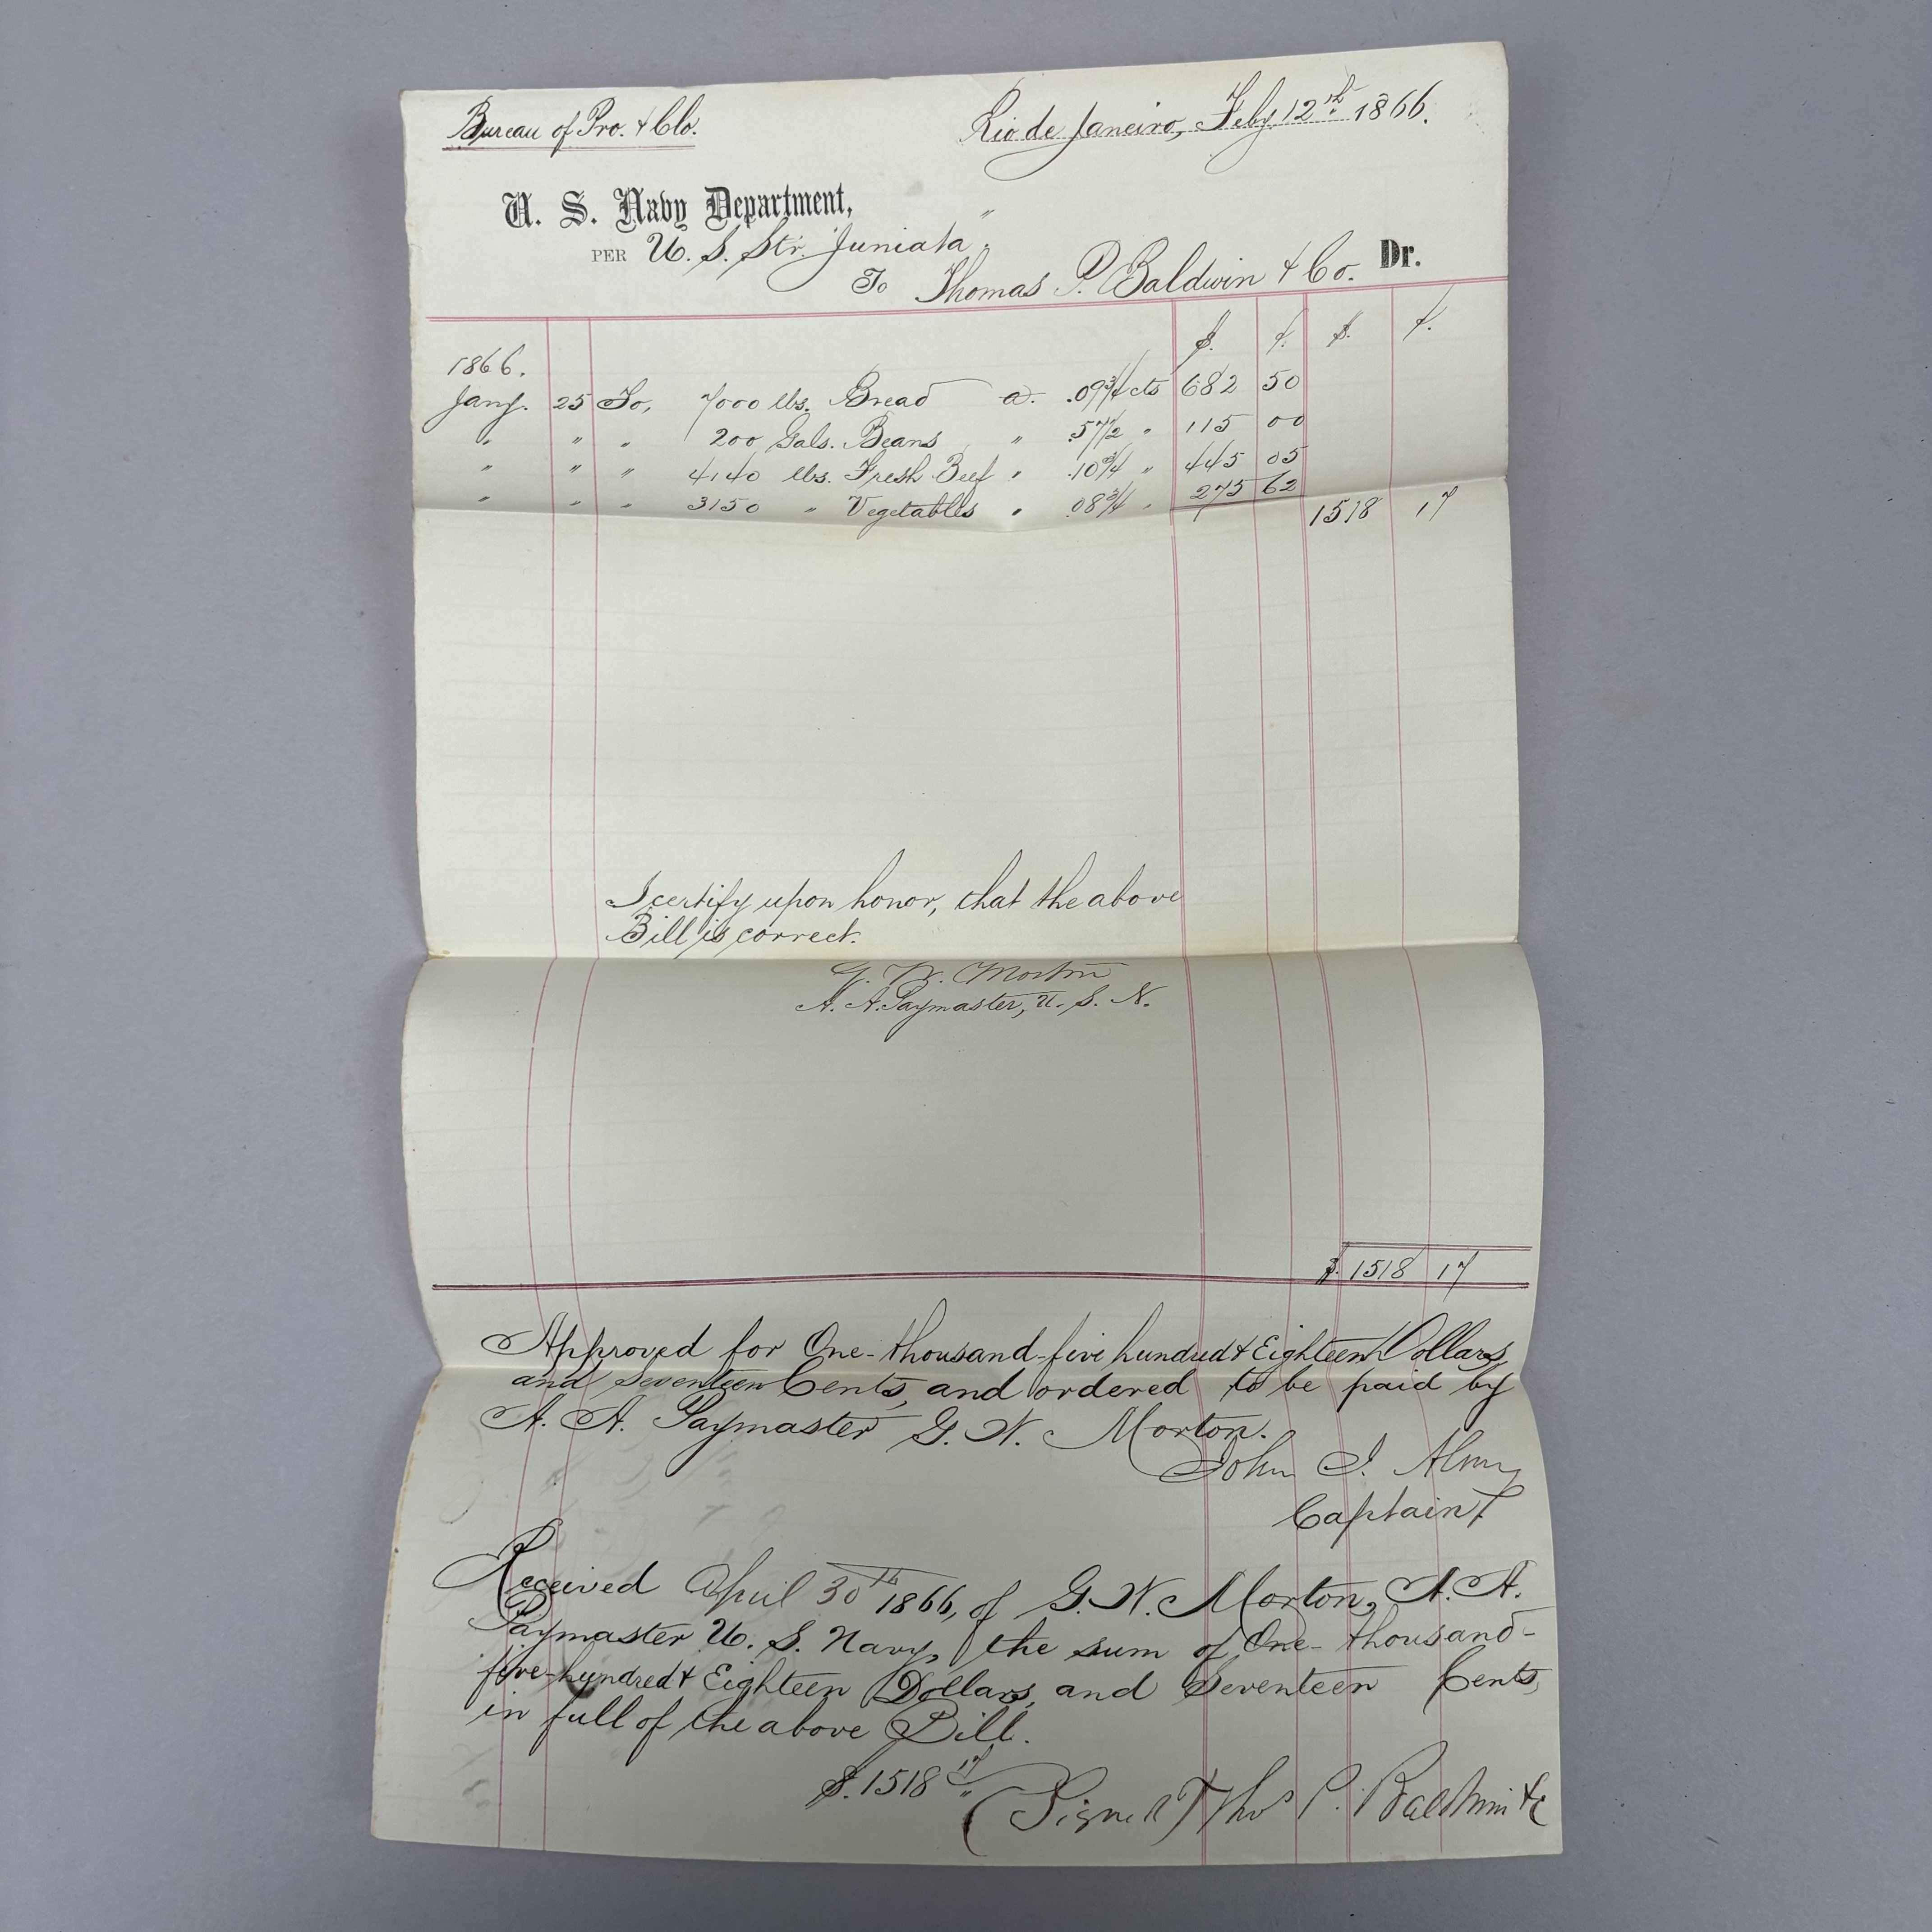 Bureau of Pro. & Clo.
Rio de Janeiro, Feby. 12th 1866.
U. S. Navy Department,
PER U. S. Str. "Juniata"
To Thomas P. Baldwin & Co. Dr.
$. ¢. $. ¢.
1866.
Jany. 25 To, 7000 lbs. Bread a .09¾ cts 682 50
" " " 200 Gals. Beans " .57½ " 115 00
" " " 4140 lbs. Fresh Beef " .10¾ " 445 05
" " " 3150 " Vegetables " .08¾ " 275 62 1518 17
I certify upon honor, that the above
Bill is correct.
G. W. Morton
A. A. Paymaster, U. S. N.
$. 1518 17
Approved for One-thousand-five hundred & Eighteen Dollars,
and Seventeen Cents, and ordered to be paid by
A. A. Paymaster G. W. Morton.
John J. Almy
Captain
Received April 30th 1866, of G. W. Morton, A. A.
Paymaster U. S. Navy, the sum of One-thousand-
five-hundred & Eighteen Dollars, and Seventeen Cents,
in full of the above Bill.
$. 1518 17
(Signed) Thos P. Baldwin & C